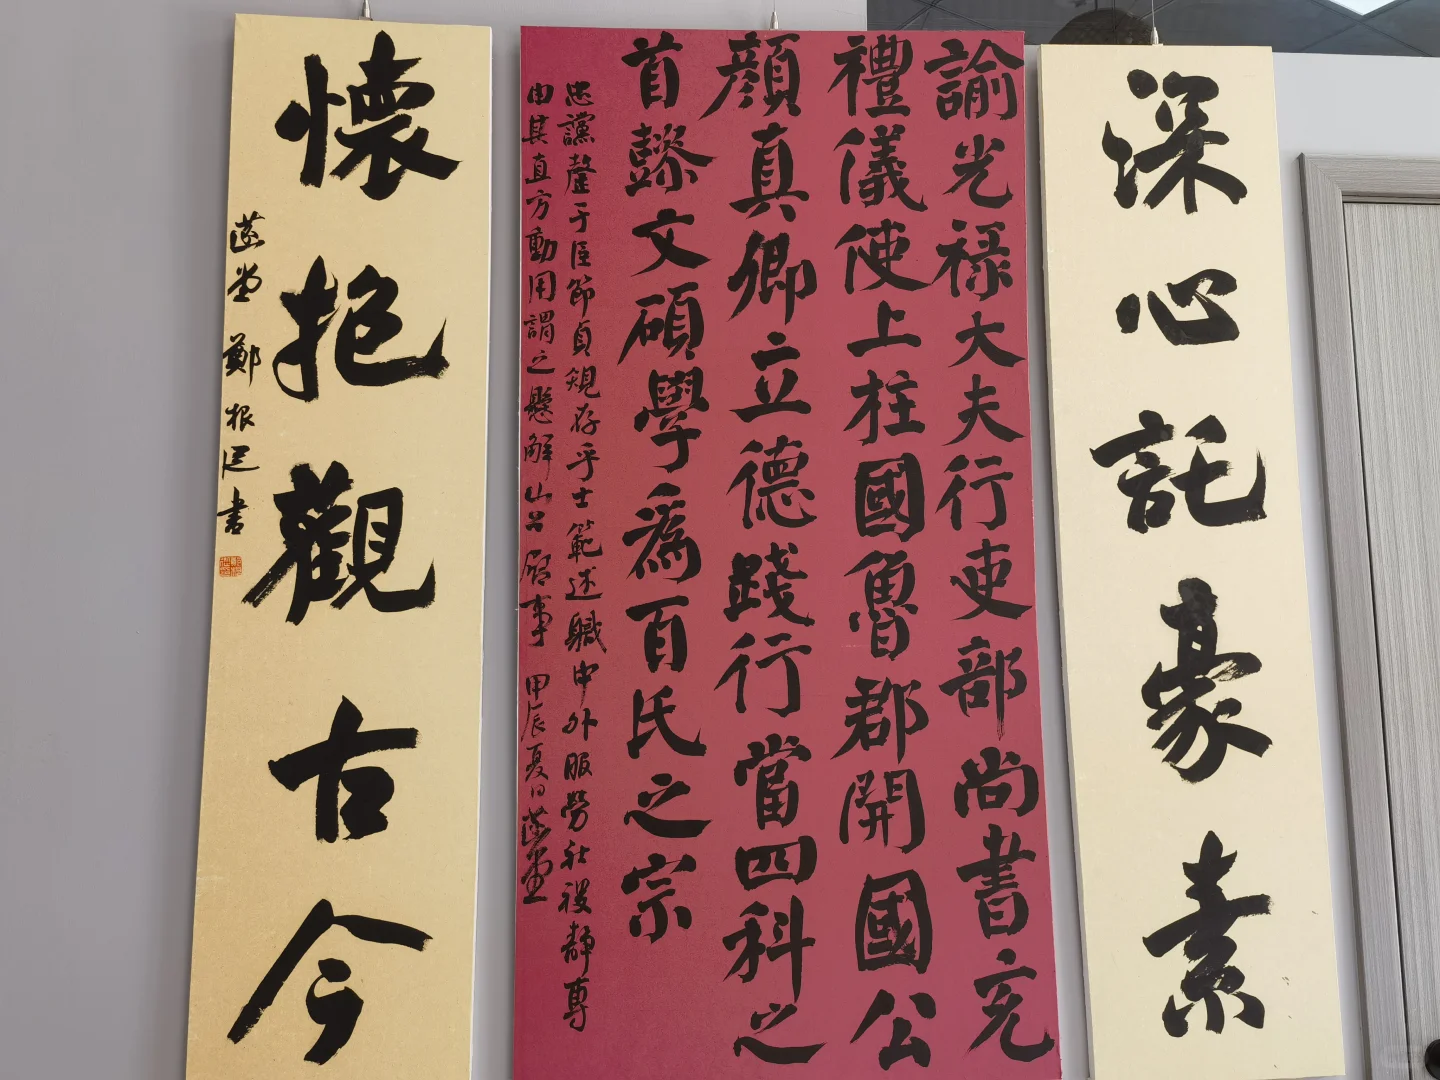 深心託豪素
諭光禄大夫行吏部尚書充
禮儀使上柱國魯郡開國公
顏真卿立德踐行當四科之
首懿文碩學爲百氏之宗
忠讜罄于臣節貞規存乎士範述軄中外服勞社稷靜專
由其直方動用謂之懸解山公啟事 甲辰夏日堂
懷抱觀古今
堂 鄭根書